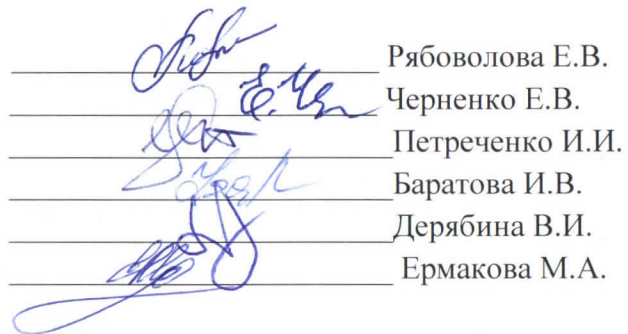 Рябоволова Е.В.
Черненко Е.В.
Петреченко И.И.
Баратова И.В.
Дерябина В.И.
Ермакова М.А.